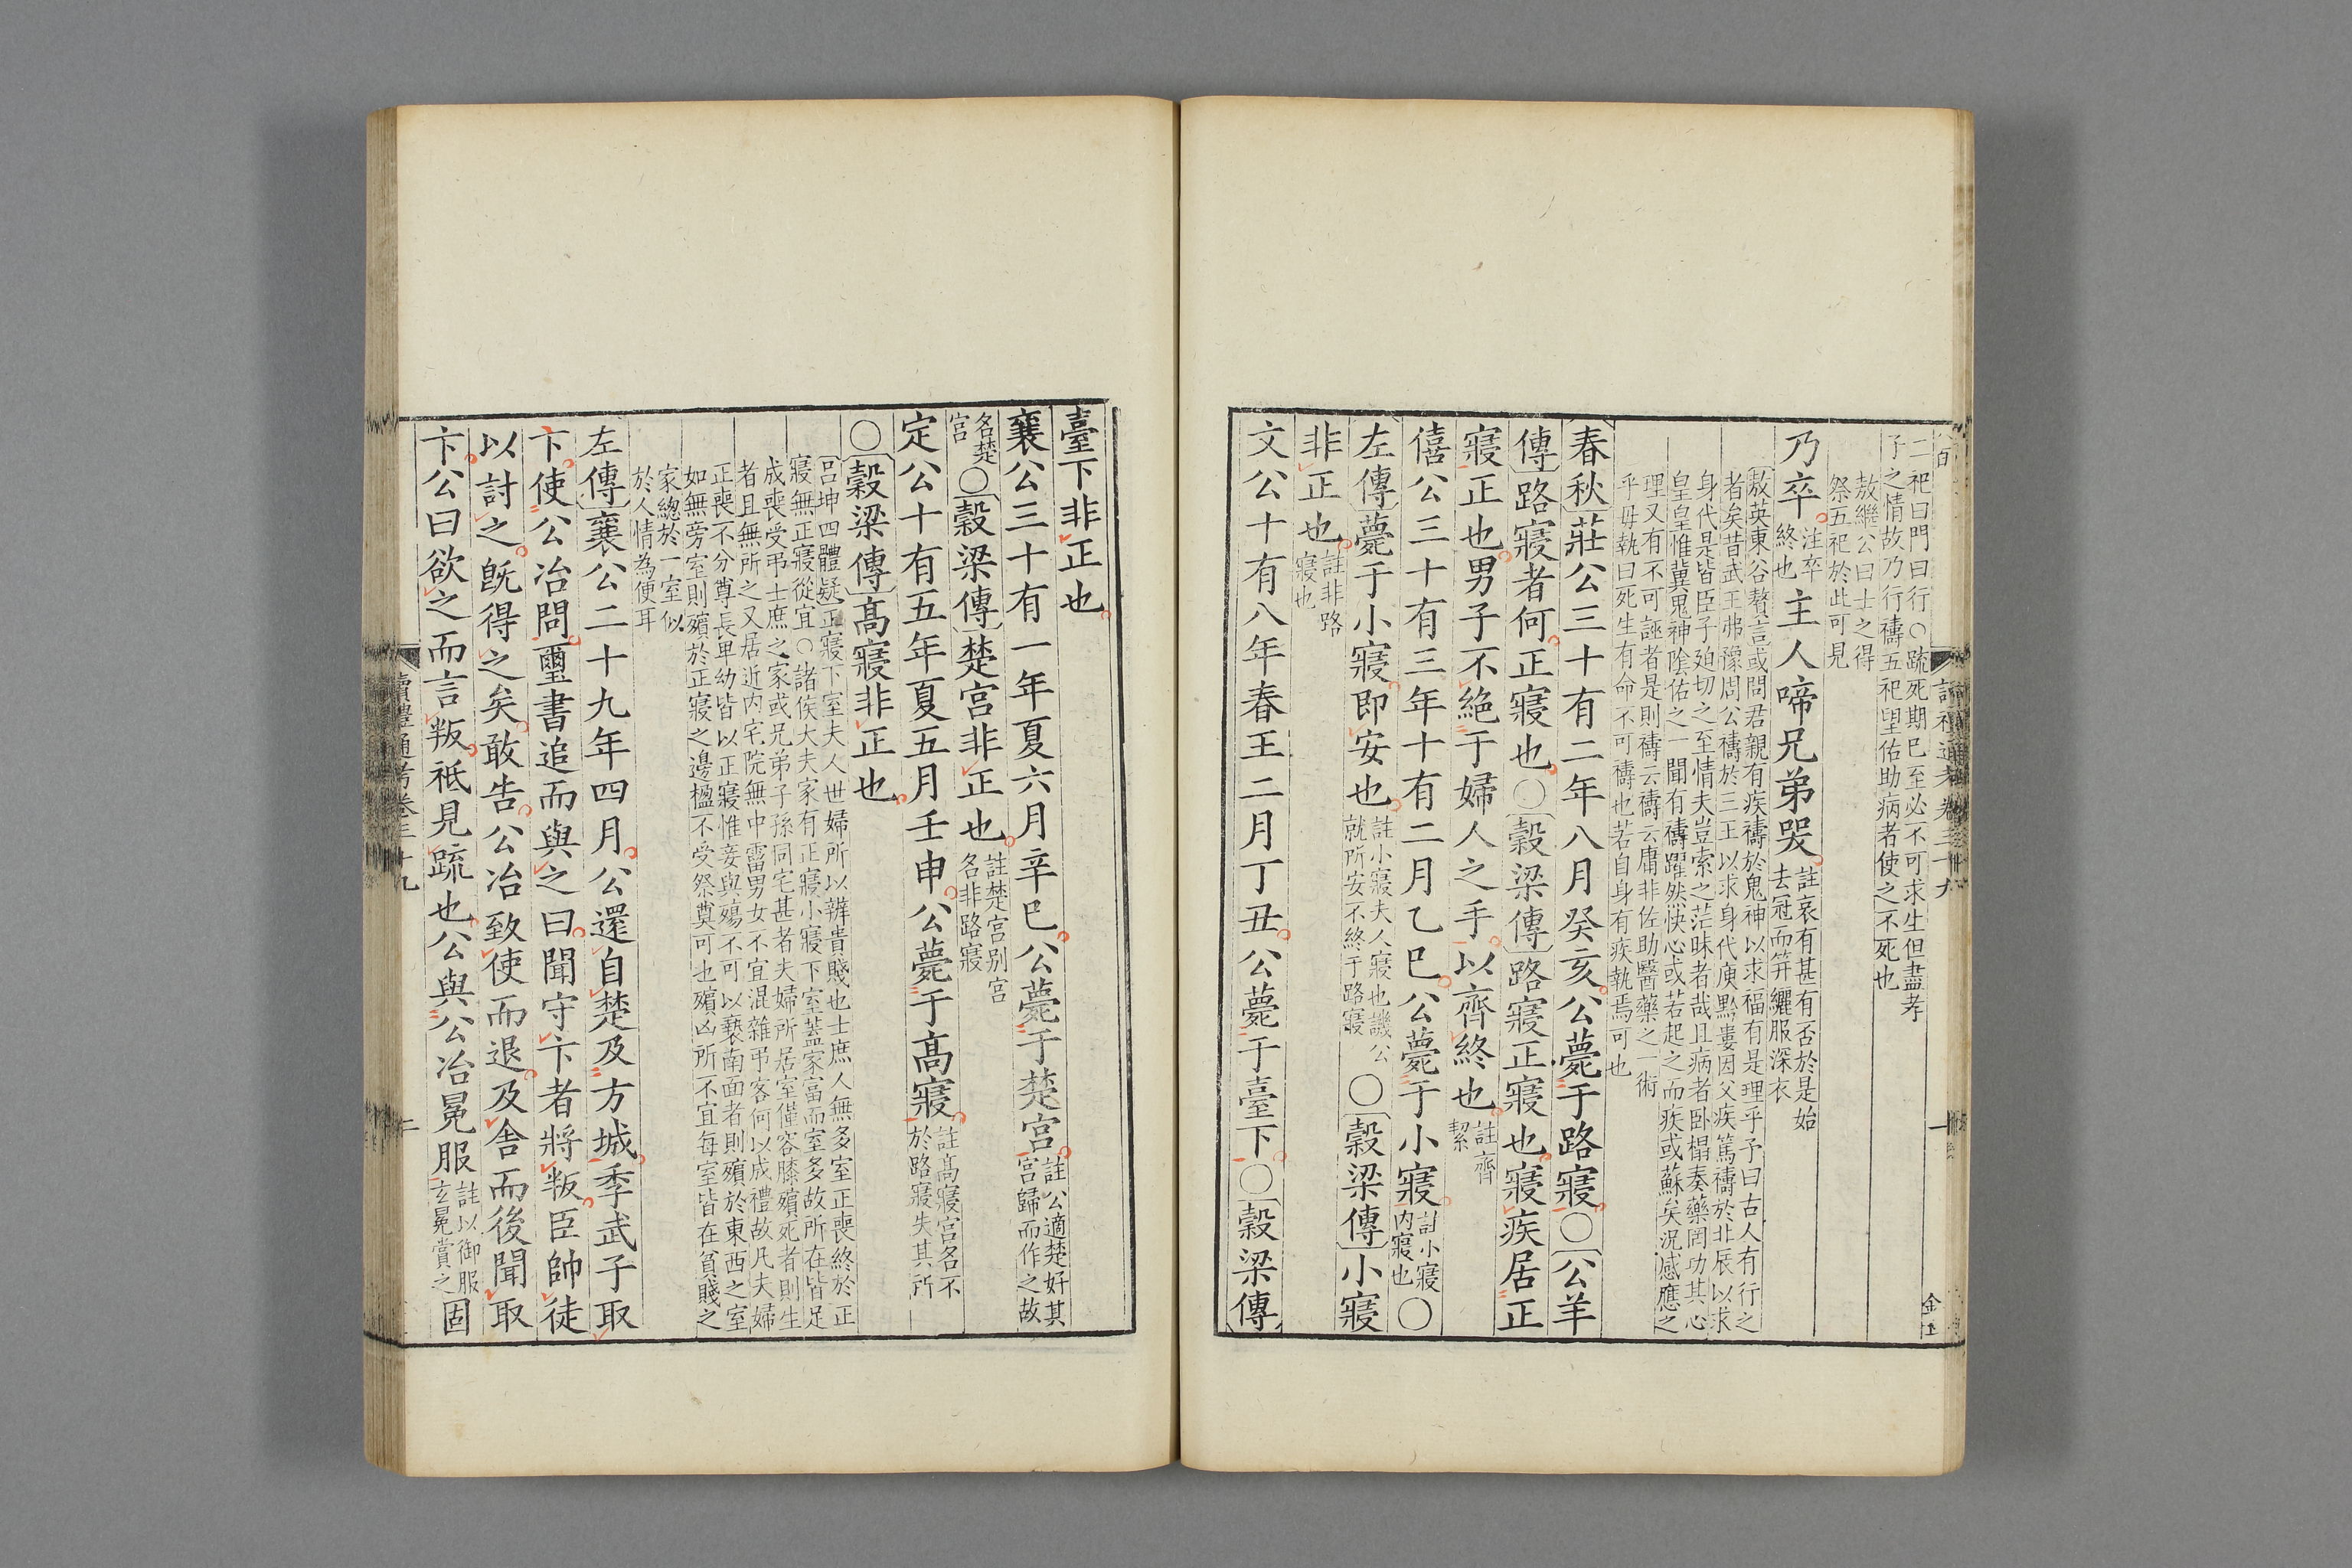 二祀曰門曰行○疏死期已至必不可求生但盡孝
子之情故乃行禱五祀望佑助病者使之不死也
敖繼公曰士之得
祭五祀於此可見
乃卒注卒終也主人啼兄弟哭註哀有甚有否於是始去冠而笄纚服深衣
敖英東谷贅言或問君親有疾禱於鬼神以求福有是理乎予曰古人有行之
者矣昔武王弗豫周公禱於三王以求身代庾黔婁因父疾篤禱於北辰以求
身代是皆臣子廹切之至情夫豈索之茫昧者哉且病者卧榻奏藥罔功其心
皇皇惟冀鬼神陰佑之一聞有禱躍然快心或若起之而疾或蘇矣況感應之
理又有不可誣者是則禱云禱云庸非佐助醫藥之一術
乎毋執曰死生有命不可禱也若自身有疾執焉可也
春秋莊公三十有二年八月癸亥公薨于路寢○公羊
傳路寢者何正寢也○穀梁傳路寢正寢也寢疾居正
寢正也男子不絶于婦人之手以齊終也註齊絜
僖公三十有三年十有二月乙巳公薨于小寢註小寢内寢也○
左傳薨于小寢即安也註小寢夫人寢也譏公就所安不終于路寢○穀梁傳小寢
非正也註非路寢也
文公十有八年春王二月丁丑公薨于臺下○穀梁傳
讀禮通考卷三十九
一
臺下非正也
襄公三十有一年夏六月辛巳公薨于楚宮註公適楚好其宮歸而作之故
名楚宮○穀梁傳楚宮非正也註楚宮别宮名非路寢
定公十有五年夏五月壬申公薨于髙寢註髙寢宮名不於路寢失其所
○穀梁傳髙寢非正也
呂坤四體疑正寢下室夫人世婦所以辨貴賤也士庶人無多室正喪終於正
寢無正寢從宜○諸侯大夫家有正寢小寢下室蓋家富而室多故所在皆足
成喪受弔士庶之家或兄弟子孫同宅甚者夫婦所居室僅容膝殯死者則生
者且無所之又居近内宅院無中霤男女不宜混雜弔客何以成禮故凡夫婦
正喪不分尊長卑幼皆以正寢惟妾與殤不可以褻南面者則殯於東西之室
如無旁室則殯於正寢之邊楹不受祭奠可也殯凶所不宜每室皆在貧賤之
家總於一室似
於人情為便耳
左傳襄公二十九年四月公還自楚及方城季武子取
卞使公冶問璽書追而與之曰聞守卞者將叛臣帥徒
以討之旣得之矣敢告公冶致使而退及舍而後聞取
卞公曰欲之而言叛祗見疏也公與公冶冕服註以御服玄冕賞之固
讀禮通考卷三十九
二